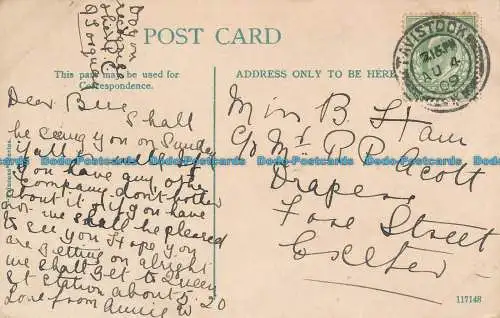 POST CARD
This part may be used for
Correspondence.
ADDRESS ONLY TO BE HERE
TAVISTOCK
2.15 PM
AU 4
09
Dear Bee Shall
be seeing you on Sunday
if all is well but if
you have any other
company don't bother
about it & if you have
not we shall be pleased
to see you Hope you
are getting on alright
we shall get to Queen
St Station about 5.20
love from Annie W
Do you
recognize
Miss B. Ham
C/o Mr P R Acott
Draper
Fore Street
Exeter
Series.
117148
Dodo-Postcards